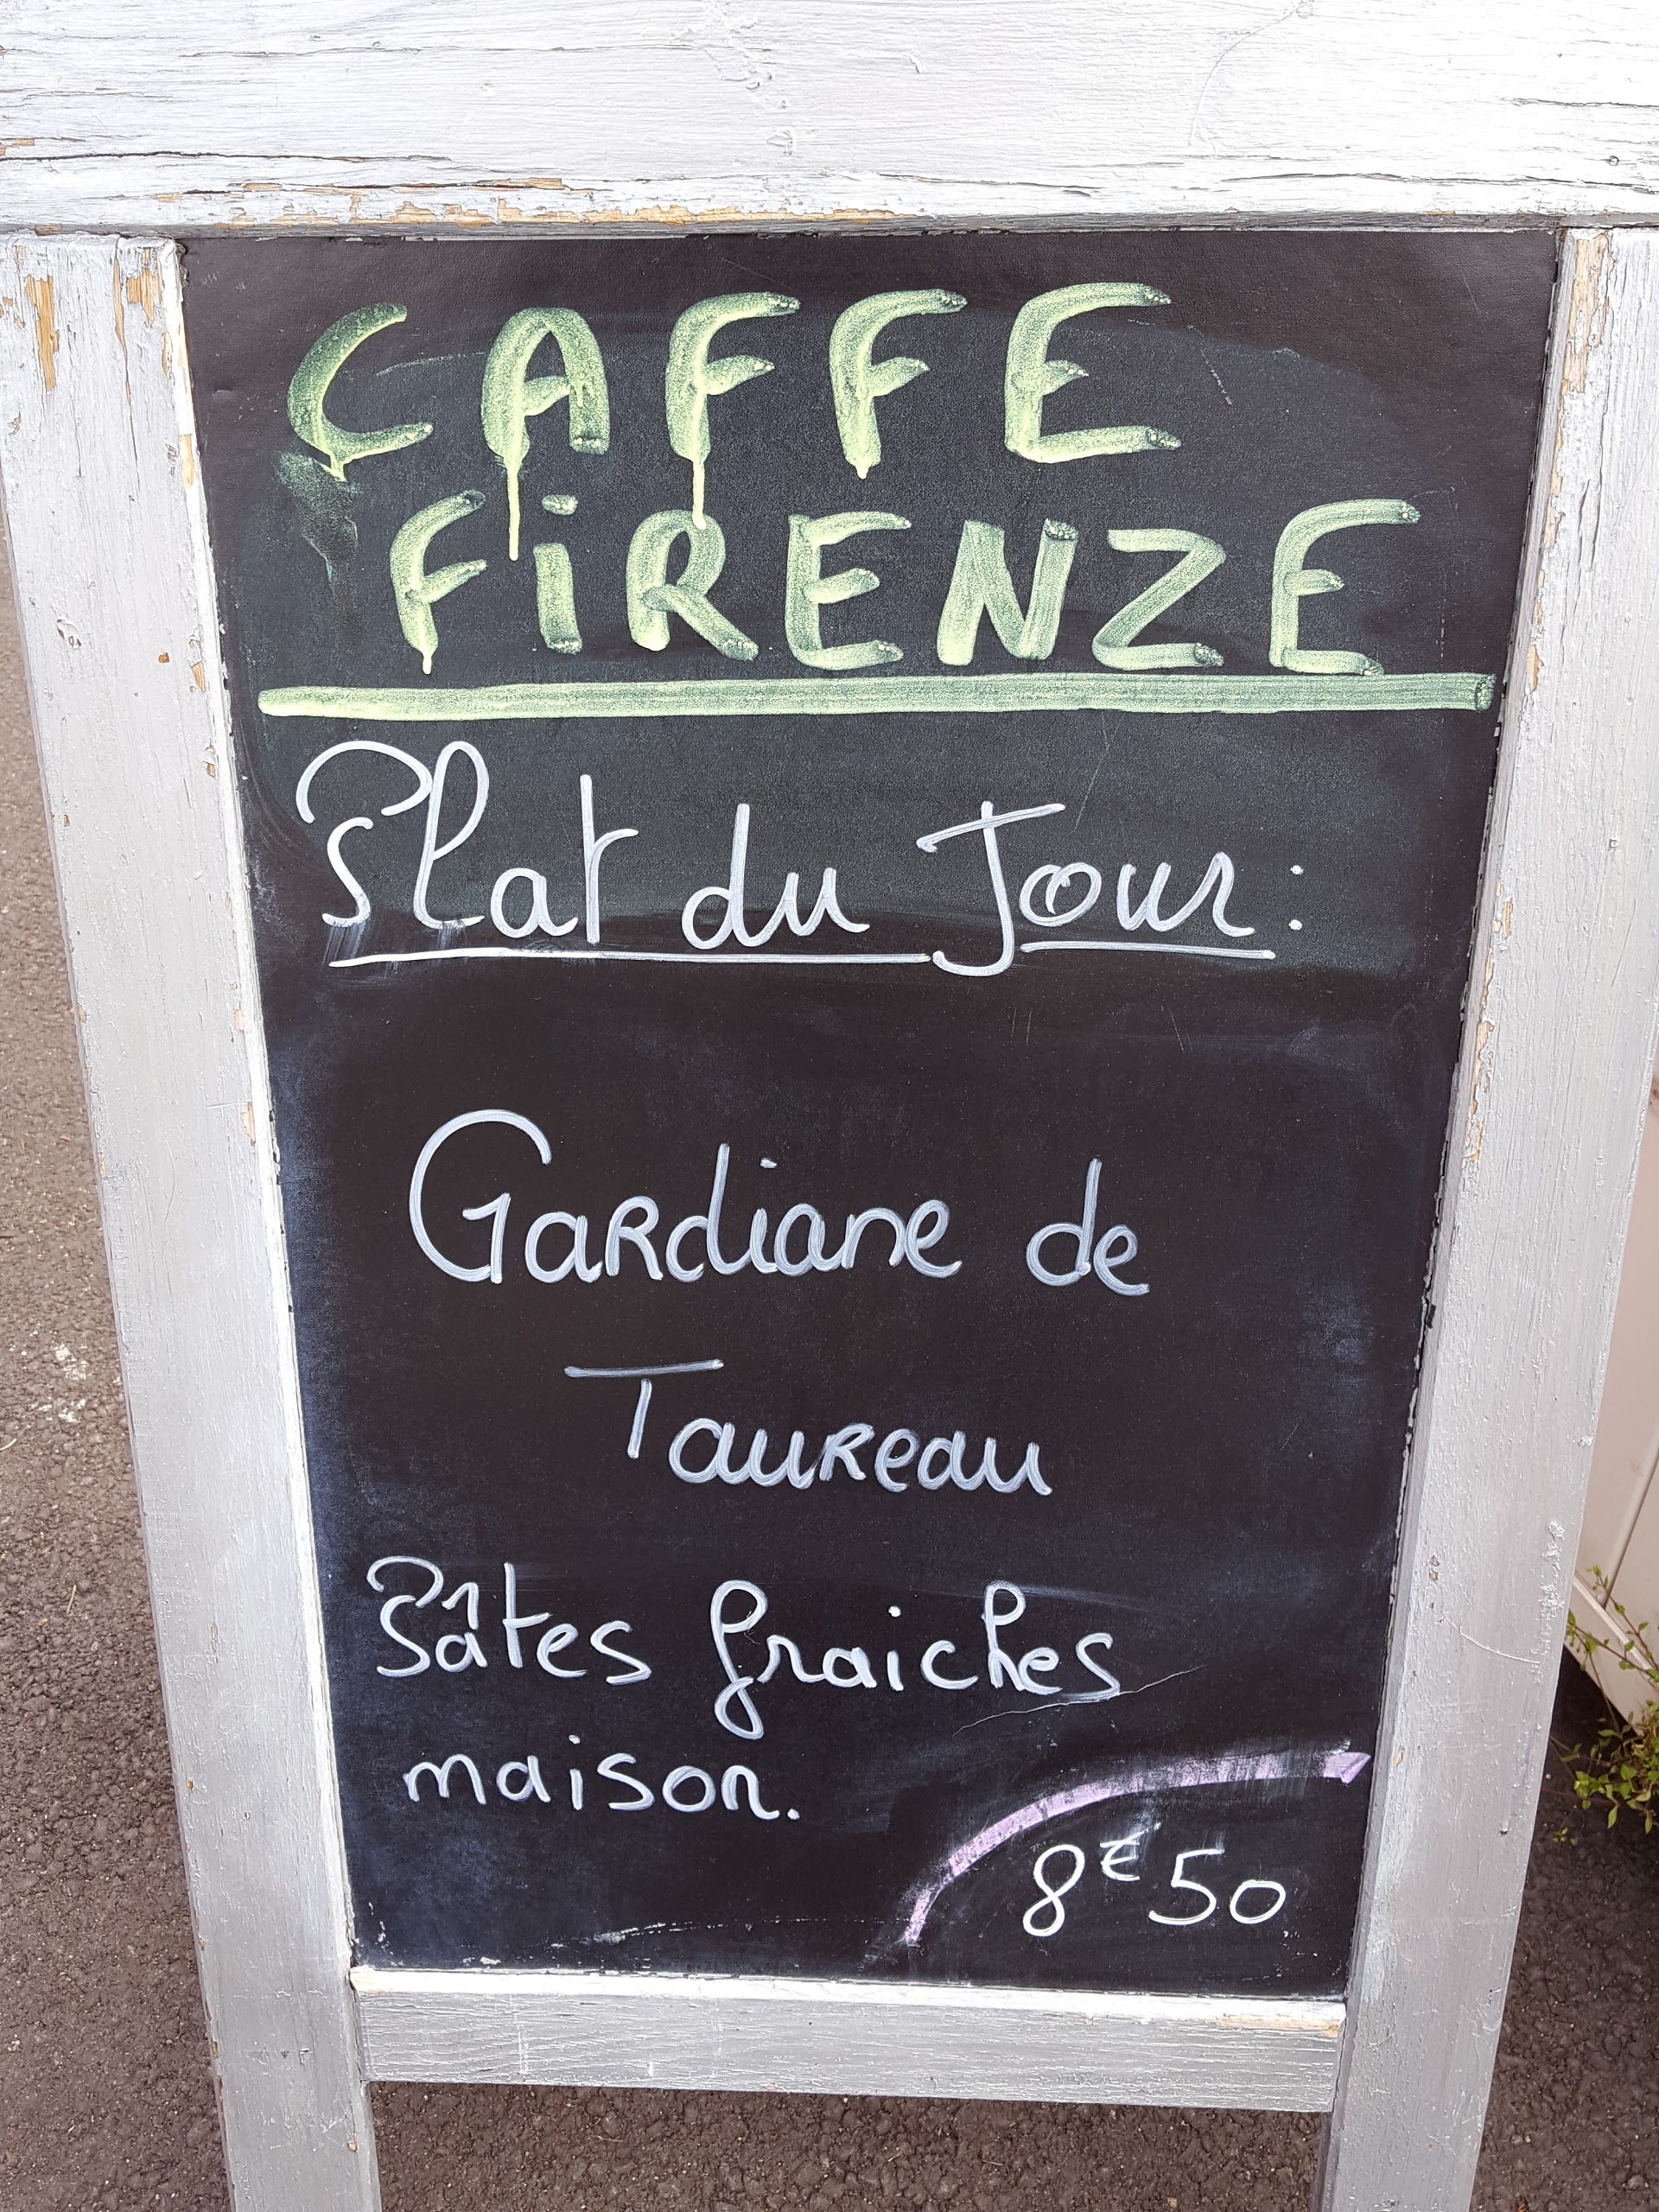 CAFFE
FiRENZE
Plat du Jour :
Gardiane de
Taureau
Pâtes fraiches
maison.
8€50